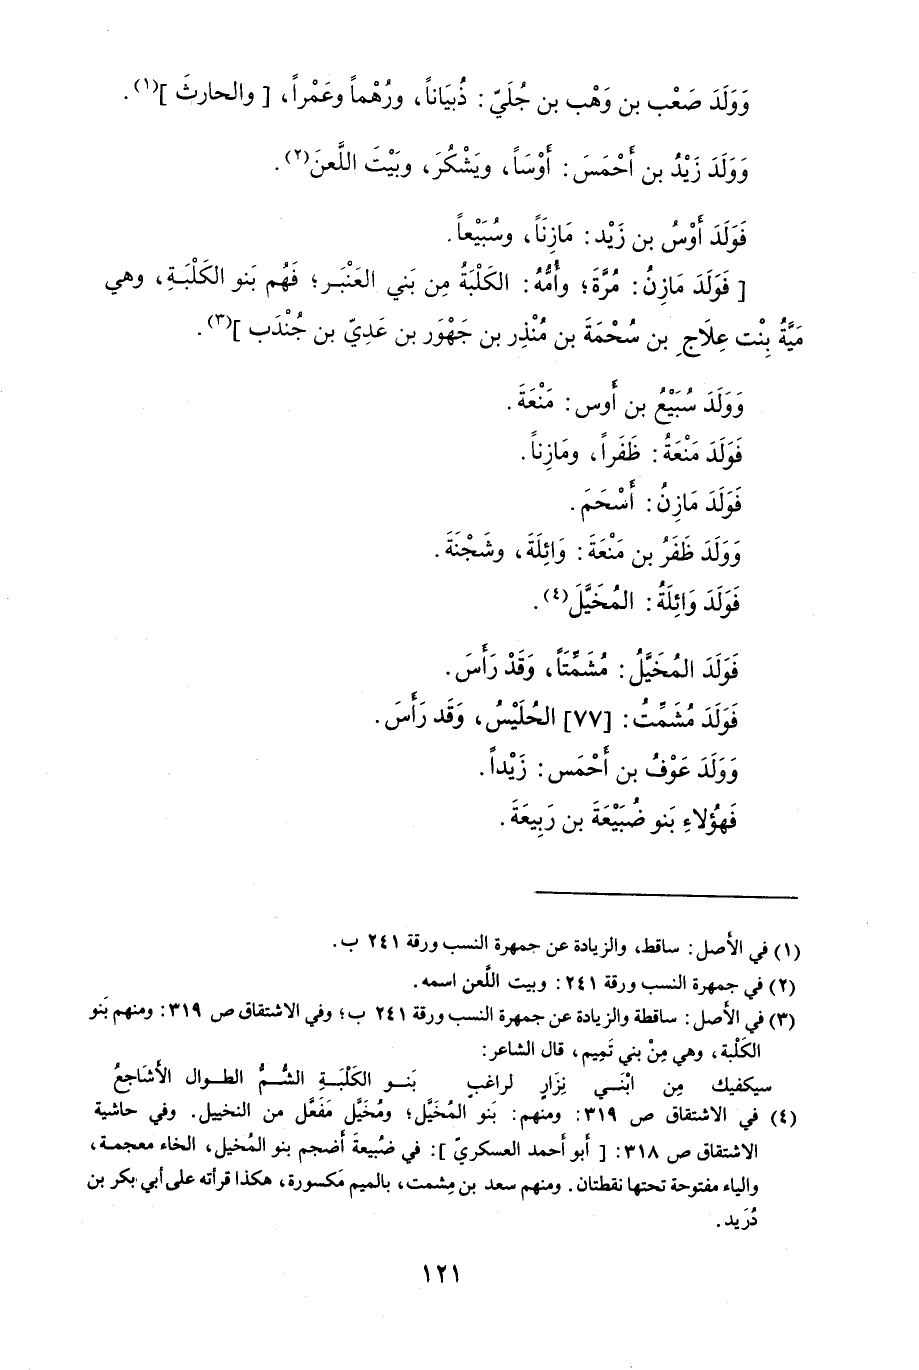 وَوَلَدَ صَعْب بن وَهْب بن جُلَيّ : ذُبيَاناً، ورُهْماً وعَمْراً، [ والحارثَ ](١).
وَوَلَدَ زَيْدُ بن أَحْمَسَ : أَوْسَاً، ويَشْكُرَ، وبَيْتَ اللَّعنَ(٢).
فَوَلَدَ أَوْسُ بن زَيْد : مَازِنَاً، وسُبَيْعاً.
[ فَوَلَدَ مَازِنُ : مُرَّةَ؛ وأُمُّهُ : الكَلْبَةُ مِن بَني العَنْبَر؛ فَهُم بَنو الكَلْبَةِ، وهي
مَيَّةُ بِنْت عِلَاجِ بن سُحْمَةَ بن مُنْذِر بن جَهْوَر بن عَدِيّ بن جُنْدَب ](٣).
وَوَلَدَ سُبَيْعُ بن أَوس : مَنْعَةَ.
فَوَلَدَ مَنْعَةُ : ظَفَراً، ومَازِناً.
فَوَلَدَ مَازِنُ : أَسْحَمَ.
وَوَلَدَ ظَفَرُ بن مَنْعَةَ : وَائِلَةَ، وشَجْنَةَ.
فَوَلَدَ وَائِلَةُ : المُخَيَّلَ(٤).
فَوَلَدَ المُخَيَّلُ : مُشَمِّتَاً، وَقَدْ رَأَسَ.
فَوَلَدَ مُشَمِّتُ : [٧٧] الحُلَيْسُ، وَقَد رَأَسَ.
وَوَلَدَ عَوْفُ بن أَحْمَس : زَيْداً.
فَهؤُلاءِ بَنو ضُبَيْعَةَ بن رَبِيعَةَ.
(١) في الأصل : ساقط، والزيادة عن جمهرة النسب ورقة ٢٤١ ب.
(٢) في جمهرة النسب ورقة ٢٤١ : وبيت اللَّعن اسمه.
(٣) في الأصل : ساقطة والزيادة عن جمهرة النسب ورقة ٢٤١ ب؛ وفي الاشتقاق ص ٣١٩ : ومنهم بَنو
الكَلْبة، وهي مِنْ بني تَميم، قال الشاعر :
سيكفيك مِن ابْنَي نِزَارٍ لراغبٍ بَنو الكَلْبَةِ الشُّمُّ الطوال الأشَاجعُ
(٤) في الاشتقاق ص ٣١٩ : ومنهم : بَنو المُخَيَّل؛ ومُخَيَّل مَفَعَّل من النخييل. وفي حاشية
الاشتقاق ص ٣١٨ : [ أبو أحمد العسكريّ ] : في ضُبيعةَ أضجم بنو المُخيل، الخاء معجمة،
والياء مفتوحة تحتها نقطتان. ومنهم سعد بن مِشمت، بالميم مَكسورة، هكذا قرأته على أبي بكر بن
دُرَيد.
١٢١